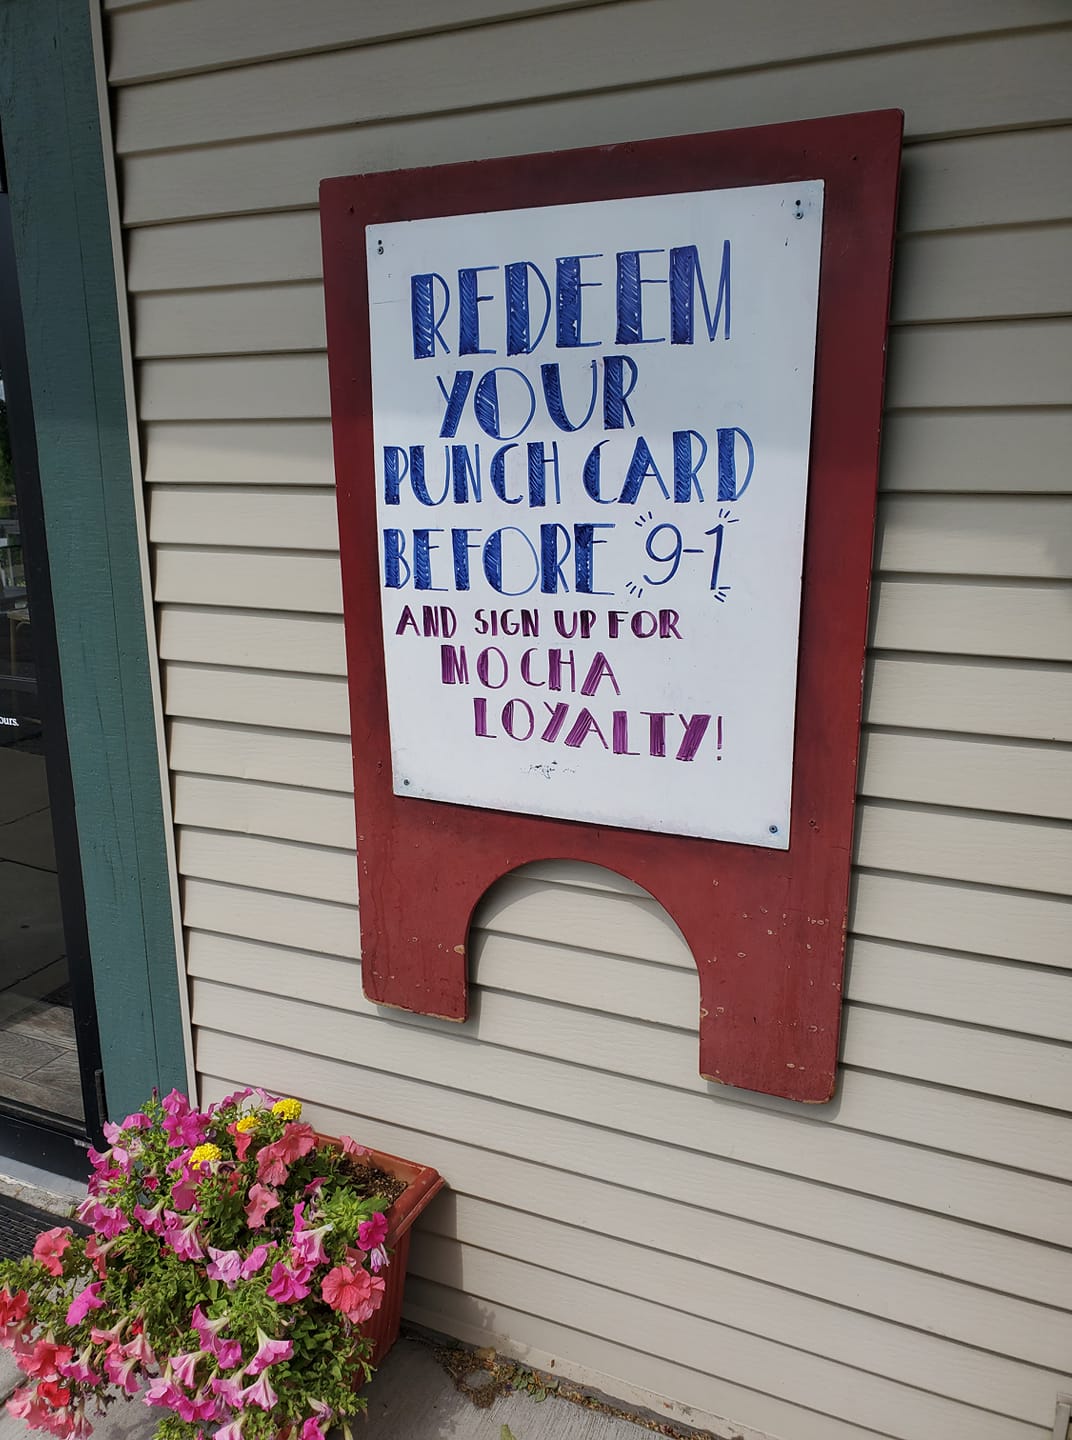 REDEEM
YOUR
PUNCH CARD
BEFORE 9-1
AND SIGN UP FOR
MOCHA
LOYALTY!
ours.